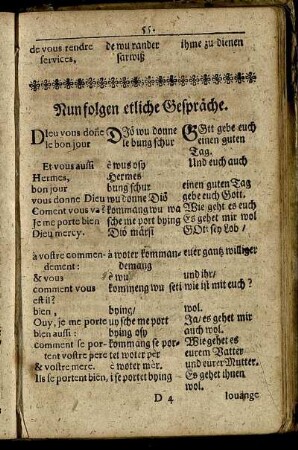 55.
de vous rendre de wu rander ihme zu dienen
services, sarwiß
Nun folgen etliche Gespräche.
Dieu vous done Diö wu donne Gott gebe euch
le bon jour le bung schur einen guten
Tag.
Et vous aussi e wus osy Und euch auch
Hermes, Hermes
bon jour bung schur einen guten Tag
vous donne Dieu wu donne Diö gebe euch Gott.
Coment vous va? kommang wu wa Wie geht es euch
Je me porte bien sche me port bying Es gehet mir wol
Dieu mercy. Diö märsi GOtt sey Lob/
à vostre commen- à woter komman- euer gantz williger
dement: demang
& vous è wu und ihr/
comment vous kommeng wu seti wie ist mit euch?
est il?
bien, bying/ wol.
Ouy, je me porte uy sche me port Ja/ es gehet mir
bien aussi: bying osy auch wol.
comment se por- kommang se por- Wie gehet es
tent vostre pere tet woter per eurem Vatter
& vostre mere. è woter mer und eurer Mutter.
Ils se portent bien, i se portet bying Es gehet ihnen
wol.
D 4 louange